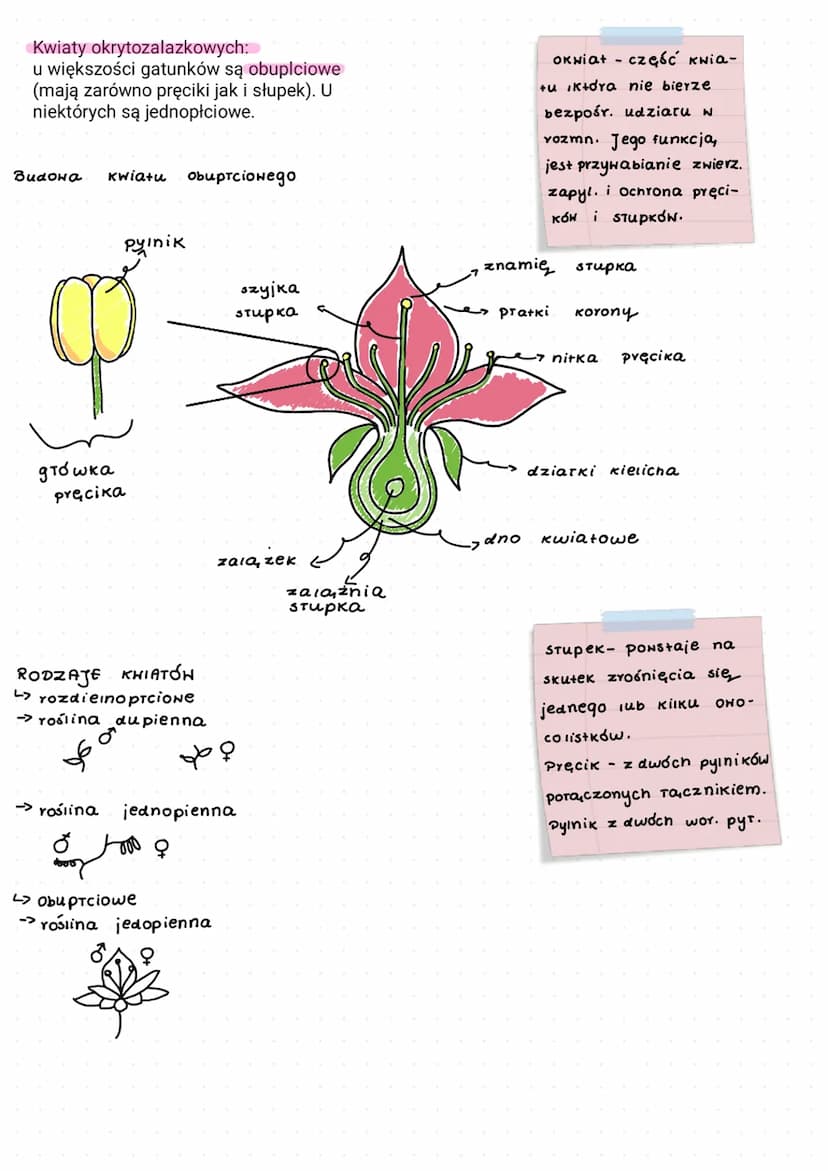 Kwiaty okrytozalazkowych:
u większości gatunków są obuplciowe
(mają zarówno pręciki jak i słupek). U
niektórych są jednopłciowe.
okwiat - część kwia-
tu ,która nie bierze
bezpośr. udziału w
rozmn. Jego funkcją,
jest przywabianie zwierz.
zapyl. i ochrona pręci-
ków i słupków.
Budowa kwiatu obupłciowego
pylnik
szyjka
słupka
znamię słupka
płatki korony
nitka pręcika
główka
pręcika
działki kielicha
dno kwiatowe
zalążek
zalążnia
słupka
RODZAJE KWIATÓW
↳ rozdzielnopłciowe
→ roślina dupienna
♂ ♀
→ roślina jednopienna
♂ ♀
↳ obupłciowe
→ roślina jedopienna
♂ ♀
słupek- powstaje na
skutek zrośnięcia się
jednego lub kilku owo-
colistków.
Pręcik - z dwóch pylników
połączonych łącznikiem.
Pylnik z dwóch wor. pył.